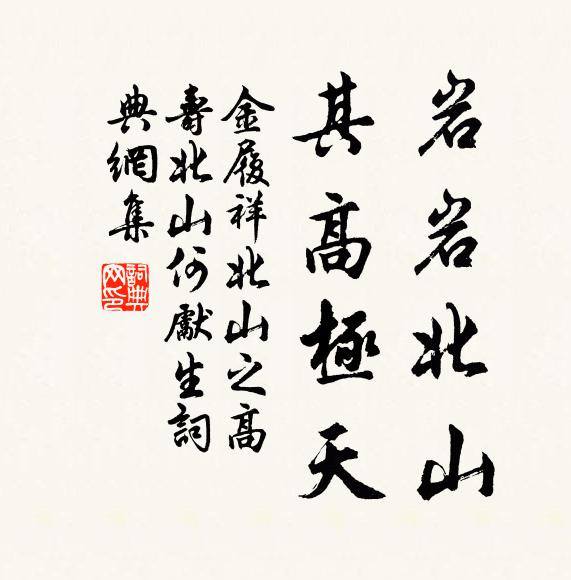 岩岩北山
其高極天
金履祥北山之高
壽北山何獻生詞
典網集
詞典网印